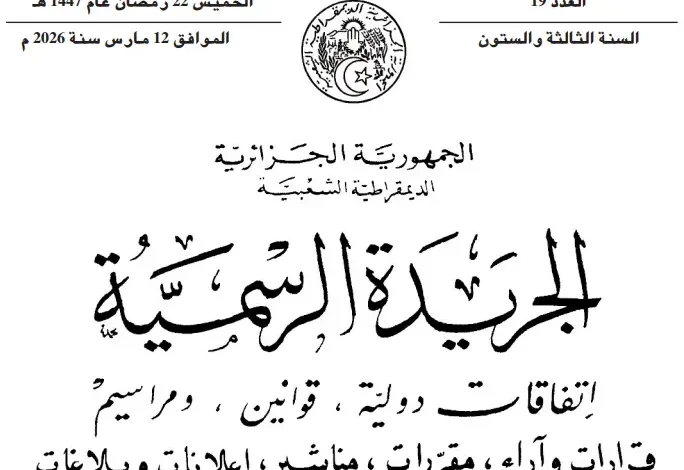 العدد 19
الخميس 22 رمضان عام 1447 هـ
السنة الثالثة والستون
الموافق 12 مارس سنة 2026 م
الجمهورية الجزائرية
الديمقراطية الشعبية
الجريدة الرسمية
إتفاقات دولية ، قوانين ، ومراسيم
قرارات وآراء ، مقررات ، مناشير ، إعلانات وبلاغات